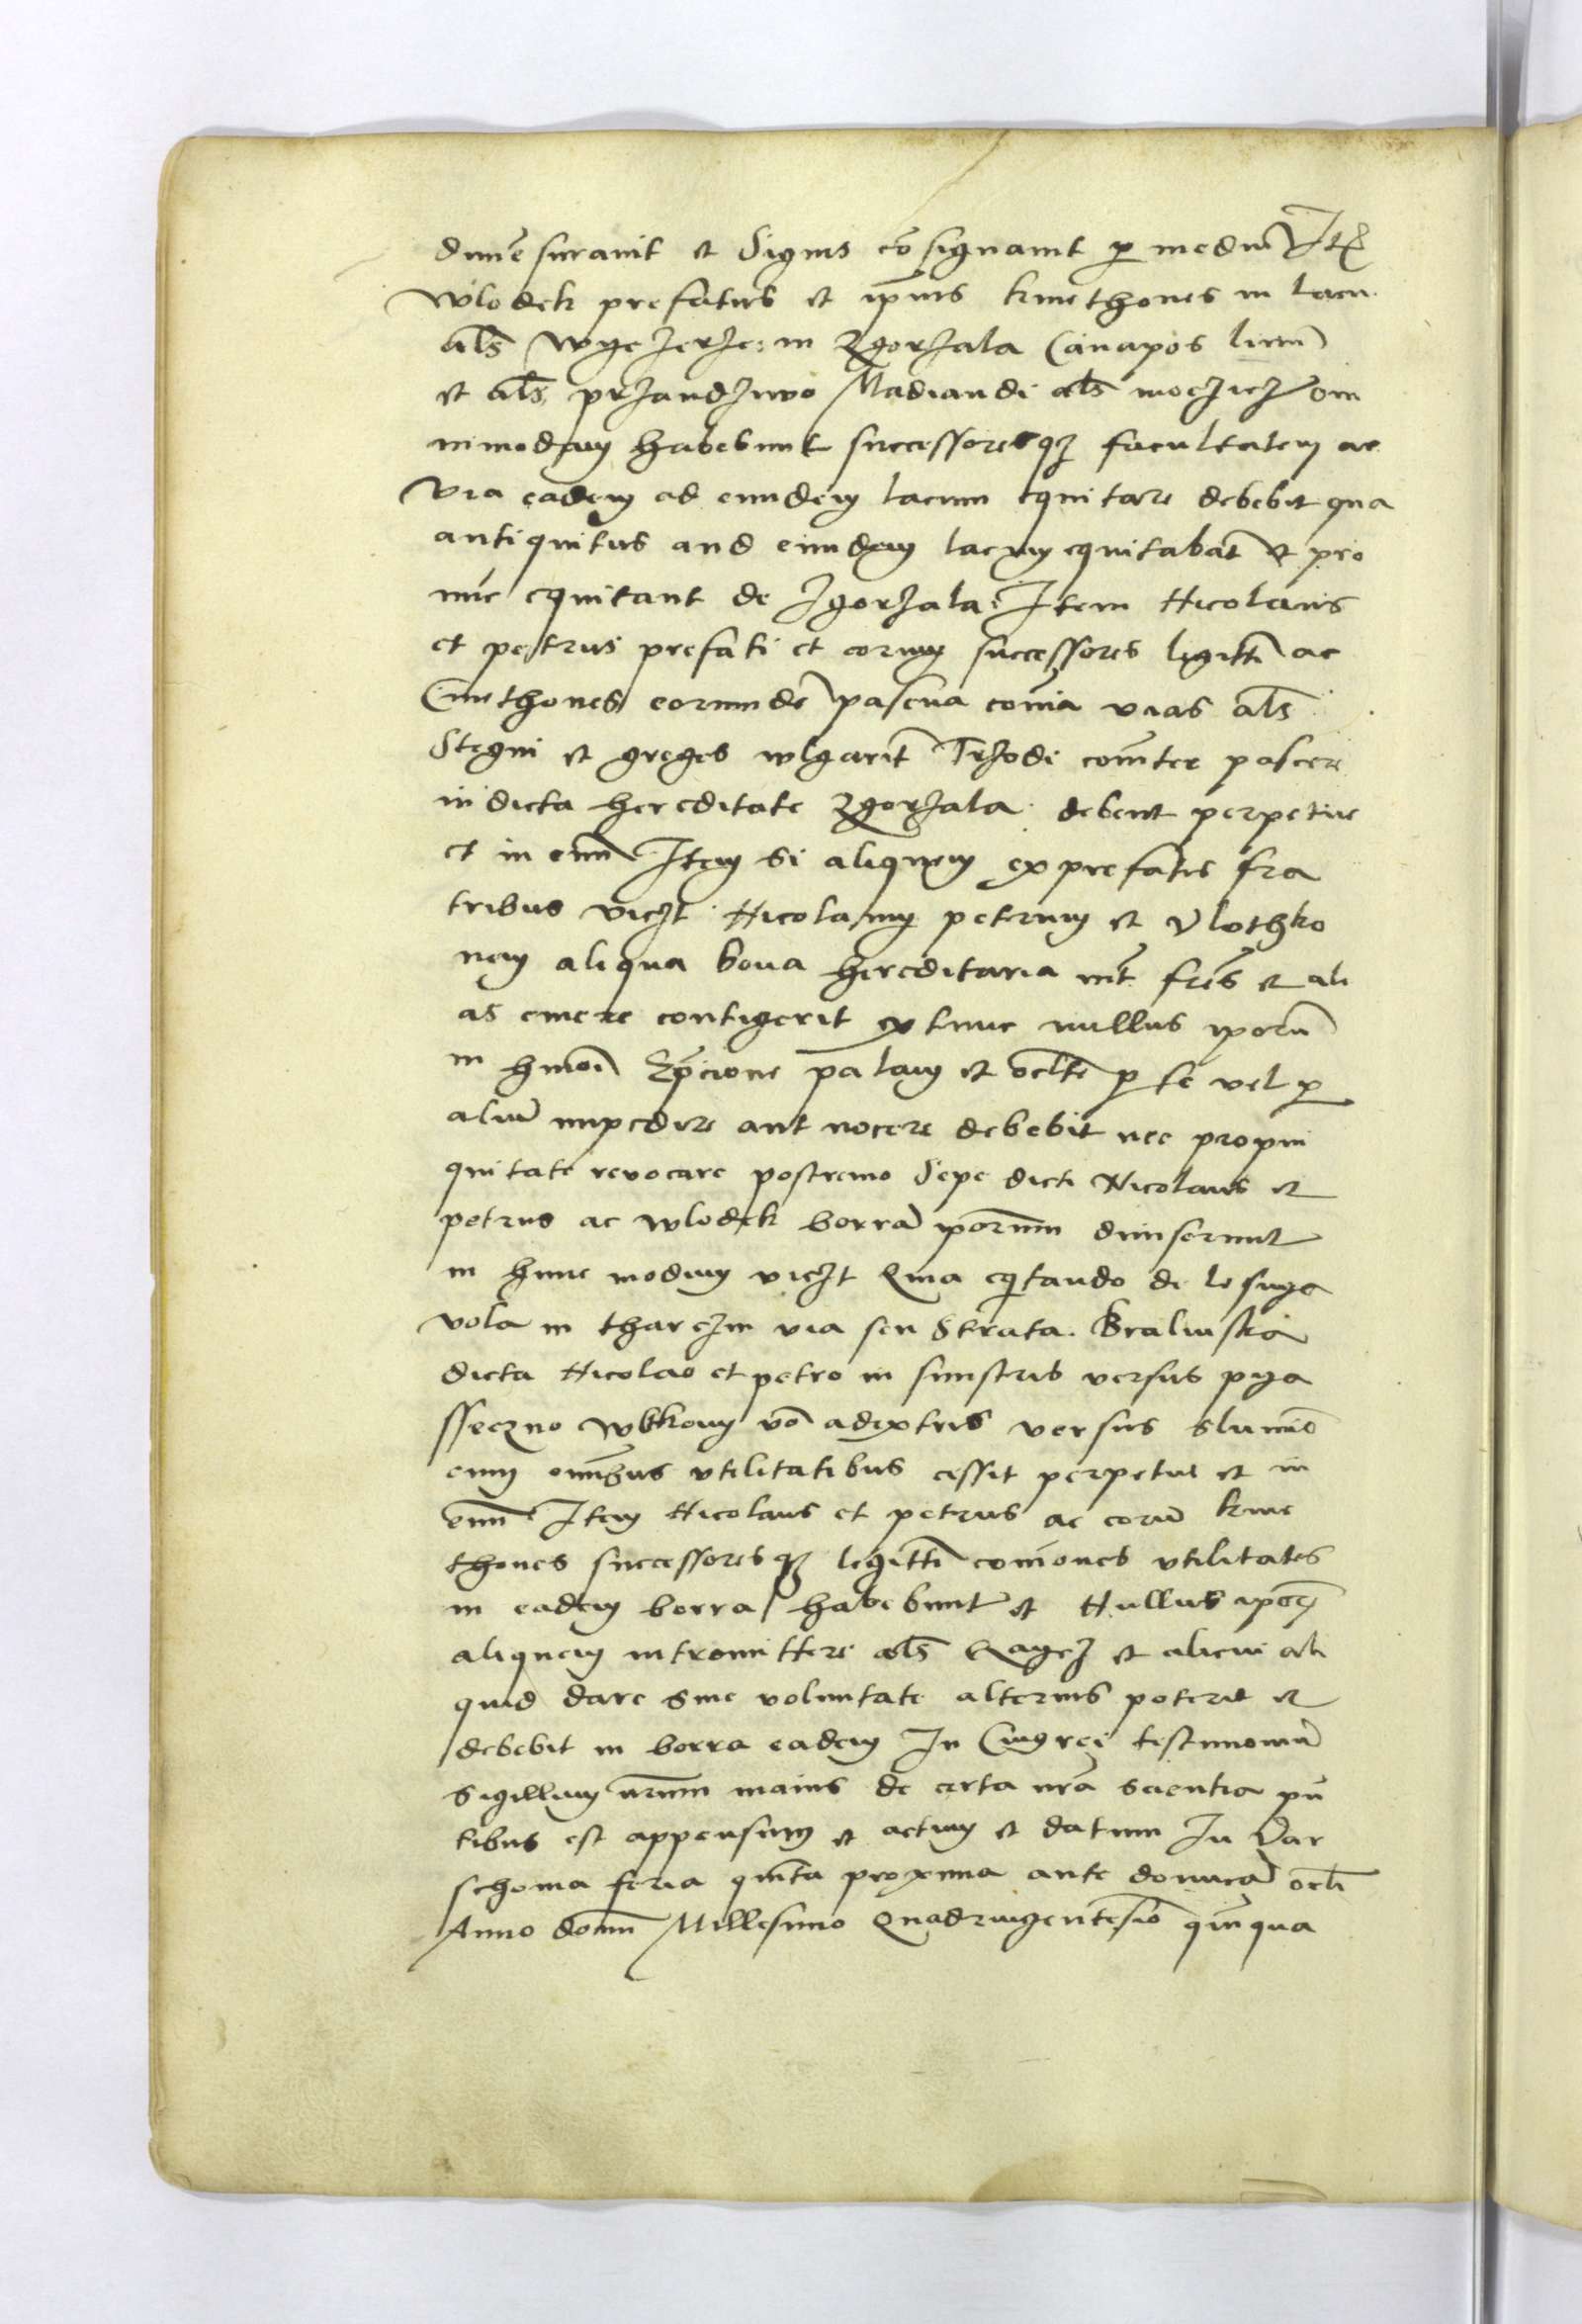 dimēsuravit et Signis cōsignavit p mediū Itē
Wlodek prefatus et ipius kmethones in lacu
als Wye JerJe: in ZgorJala Canapos linū
et als prJandJivo Madiandi als moczicz om
nimodam habebunt successoresqz facultatem ac
via eadem ad eundem lacum equitare debebit qua
antiquitus aud eundem lacum equitabāt et pro
nūc equitant de JgorJala Item Nicolaus
et petrus prefati et eorum successores legitti ac
Cmethones eorundē pascua cōia vias als
Stegni et greges wlgarit TrJodi comiter pascere
in dicta hereditate ZgorJala debent perpetue
et in evū Item Si aliquem ex prefatis fra
tribus viczt Nicolaum petrum et Vlothko
nem aliqua bona hereditaria int frēs et ali
as emere contigerit extunc nullus ipōrū
in hmōi Empcione palam et ocltē p se vel p
aliū impedire aut nocere debebit nec propin
quitate revocare postremo Sepe dicti Nicolaus et
petrus ac Wlodek borrā ipōrum diviserunt
in hunc modum viczt Qma eqtando de lesnya
vola in tharczin via seu Strata Bralinska
dicta Nicolao et petro in sinistris versus pya
sseczno Wlkkoni vō adextris versus Slumīo
cum omībus utilitatibus cessit perpetue et in
evū Item Nicolaus et petrus ac eorū kme
thones successoresqz legitti comiones utilitates
in eadem borra habebunt et Nullus ipōr
aliquem intromittere als Wagicz et alicui ali
quid dare sine voluntate alterius poterit et
debebit in borra eadem In Cuius rei testimoniū
Sigillum nrum maius de certa nrā scientia pn
tibus est appensum et actum et datum In Var
schovia feria quīta proxima ante dominicā ocli
Anno domī Millesimo Quadringentesīo quīqua